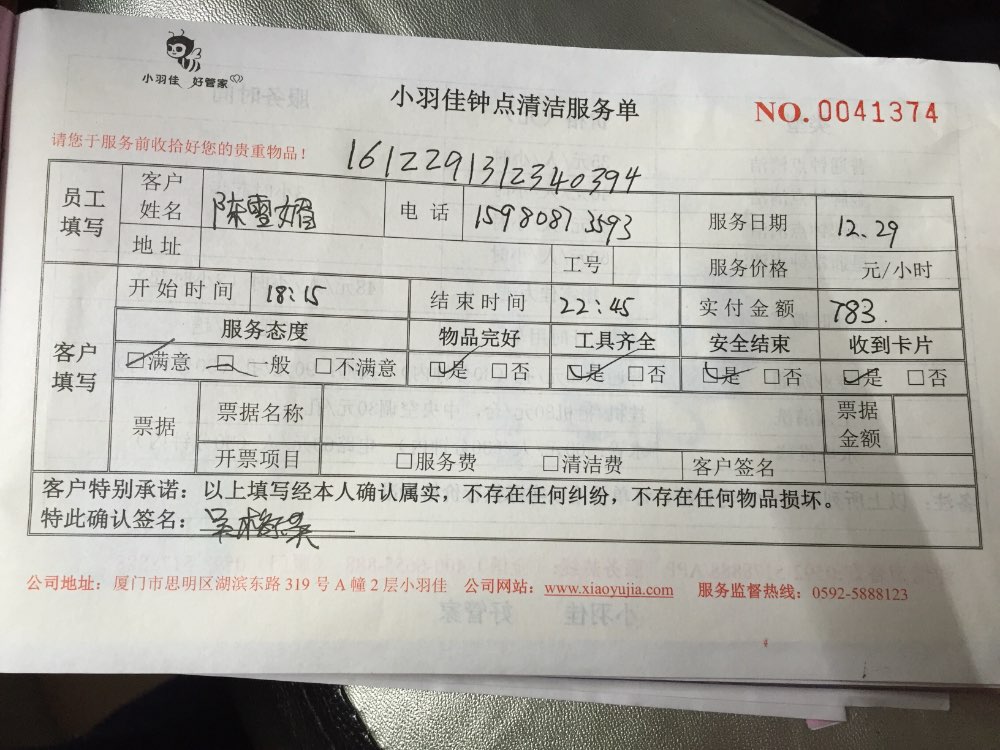 小羽佳 好管家
小羽佳钟点清洁服务单
NO. 0041374
请您于服务前收拾好您的贵重物品！
161229131234 0394
员工填写 客户姓名 陈雪媚 电话 15980873593 服务日期 12.29
地址 工号 服务价格 元/小时
客户填写 开始时间 18:15 结束时间 22:45 实付金额 783.
服务态度 物品完好 工具齐全 安全结束 收到卡片
☑满意 □一般 □不满意 ☑是 □否 ☑是 □否 ☑是 □否 ☑是 □否
票据 票据名称 票据金额
开票项目 □服务费 □清洁费 客户签名
客户特别承诺：以上填写经本人确认属实，不存在任何纠纷，不存在任何物品损坏。
特此确认签名：
公司地址：厦门市思明区湖滨东路 319 号 A 幢 2 层小羽佳 公司网站：www.xiaoyujia.com 服务监督热线：0592-5888123